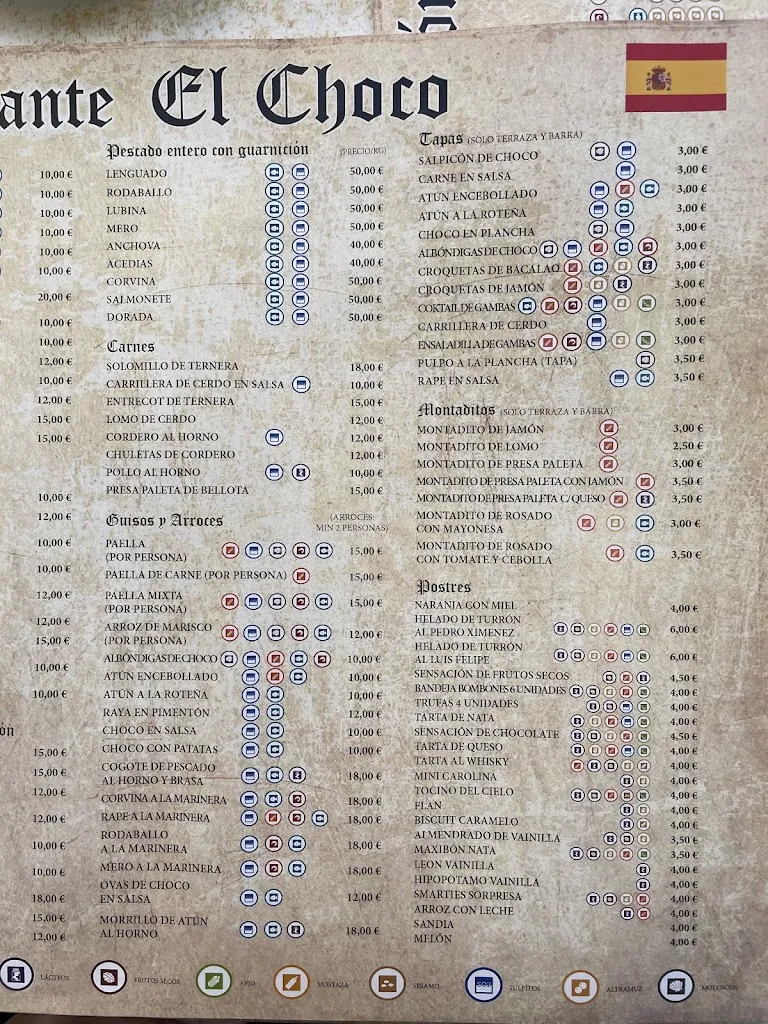 ante El Choco
10,00 €
10,00 €
10,00 €
10,00 €
10,00 €
10,00 €
20,00 €
10,00 €
10,00 €
12,00 €
10,00 €
12,00 €
15,00 €
15,00 €
10,00 €
12,00 €
10,00 €
10,00 €
12,00 €
12,00 €
15,00 €
10,00 €
10,00 €
ón
15,00 €
15,00 €
12,00 €
12,00 €
10,00 €
10,00 €
18,00 €
15,00 €
12,00 €
Pescado entero con guarnición (PRECIO/KG)
LENGUADO 50,00 €
RODABALLO 50,00 €
LUBINA 50,00 €
MERO 50,00 €
ANCHOVA 40,00 €
ACEDIAS 40,00 €
CORVINA 50,00 €
SALMONETE 50,00 €
DORADA 50,00 €
Carnes
SOLOMILLO DE TERNERA 18,00 €
CARRILLERA DE CERDO EN SALSA 10,00 €
ENTRECOT DE TERNERA 15,00 €
LOMO DE CERDO 12,00 €
CORDERO AL HORNO 12,00 €
CHULETAS DE CORDERO 12,00 €
POLLO AL HORNO 10,00 €
PRESA PALETA DE BELLOTA 15,00 €
Guisos y Arroces (ARROCES:
MIN 2 PERSONAS)
PAELLA
(POR PERSONA) 15,00 €
PAELLA DE CARNE (POR PERSONA) 15,00 €
PAELLA MIXTA
(POR PERSONA) 15,00 €
ARROZ DE MARISCO
(POR PERSONA) 12,00 €
ALBÓNDIGAS DE CHOCO 10,00 €
ATÚN ENCEBOLLADO 10,00 €
ATÚN A LA ROTEÑA 10,00 €
RAYA EN PIMENTÓN 12,00 €
CHOCO EN SALSA 10,00 €
CHOCO CON PATATAS 10,00 €
COGOTE DE PESCADO
AL HORNO Y BRASA 18,00 €
CORVINA A LA MARINERA 18,00 €
RAPE A LA MARINERA 18,00 €
RODABALLO
A LA MARINERA 18,00 €
MERO A LA MARINERA 18,00 €
OVAS DE CHOCO
EN SALSA 12,00 €
MORRILLO DE ATÚN
AL HORNO 18,00 €
Tapas (SOLO TERRAZA Y BARRA)
SALPICÓN DE CHOCO 3,00 €
CARNE EN SALSA 3,00 €
ATÚN ENCEBOLLADO 3,00 €
ATÚN A LA ROTEÑA 3,00 €
CHOCO EN PLANCHA 3,00 €
ALBÓNDIGAS DE CHOCO 3,00 €
CROQUETAS DE BACALAO 3,00 €
CROQUETAS DE JAMÓN 3,00 €
COKTAIL DE GAMBAS 3,00 €
CARRILLERA DE CERDO 3,00 €
ENSALADILLA DE GAMBAS 3,00 €
PULPO A LA PLANCHA (TAPA) 3,50 €
RAPE EN SALSA 3,50 €
Montaditos (SOLO TERRAZA Y BARRA)
MONTADITO DE JAMÓN 3,00 €
MONTADITO DE LOMO 2,50 €
MONTADITO DE PRESA PALETA 3,00 €
MONTADITO DE PRESA PALETA CON JAMÓN 3,50 €
MONTADITO DE PRESA PALETA C/ QUESO 3,50 €
MONTADITO DE ROSADO
CON MAYONESA 3,00 €
MONTADITO DE ROSADO
CON TOMATE Y CEBOLLA 3,50 €
Postres
NARANJA CON MIEL 4,00 €
HELADO DE TURRÓN
AL PEDRO XIMENEZ 6,00 €
HELADO DE TURRÓN
AL LUIS FELIPE 6,00 €
SENSACIÓN DE FRUTOS SECOS 4,50 €
BANDEJA BOMBONES 6 UNIDADES 4,00 €
TRUFAS 4 UNIDADES 4,00 €
TARTA DE NATA 4,00 €
SENSACIÓN DE CHOCOLATE 4,50 €
TARTA DE QUESO 4,00 €
TARTA AL WHISKY 4,00 €
MINI CAROLINA 4,00 €
TOCINO DEL CIELO 4,00 €
FLAN 4,00 €
BISCUIT CARAMELO 4,00 €
ALMENDRADO DE VAINILLA 3,50 €
MAXIBON NATA 3,50 €
LEON VAINILLA 4,00 €
HIPOPOTAMO VAINILLA 4,00 €
SMARTIES SORPRESA 4,00 €
ARROZ CON LECHE 4,00 €
SANDIA 4,00 €
MELÓN 4,00 €
LÁCTEOS FRUTOS SECOS APIO MOSTAZA SÉSAMO SULFITOS ALTRAMUZ MOLUSCOS